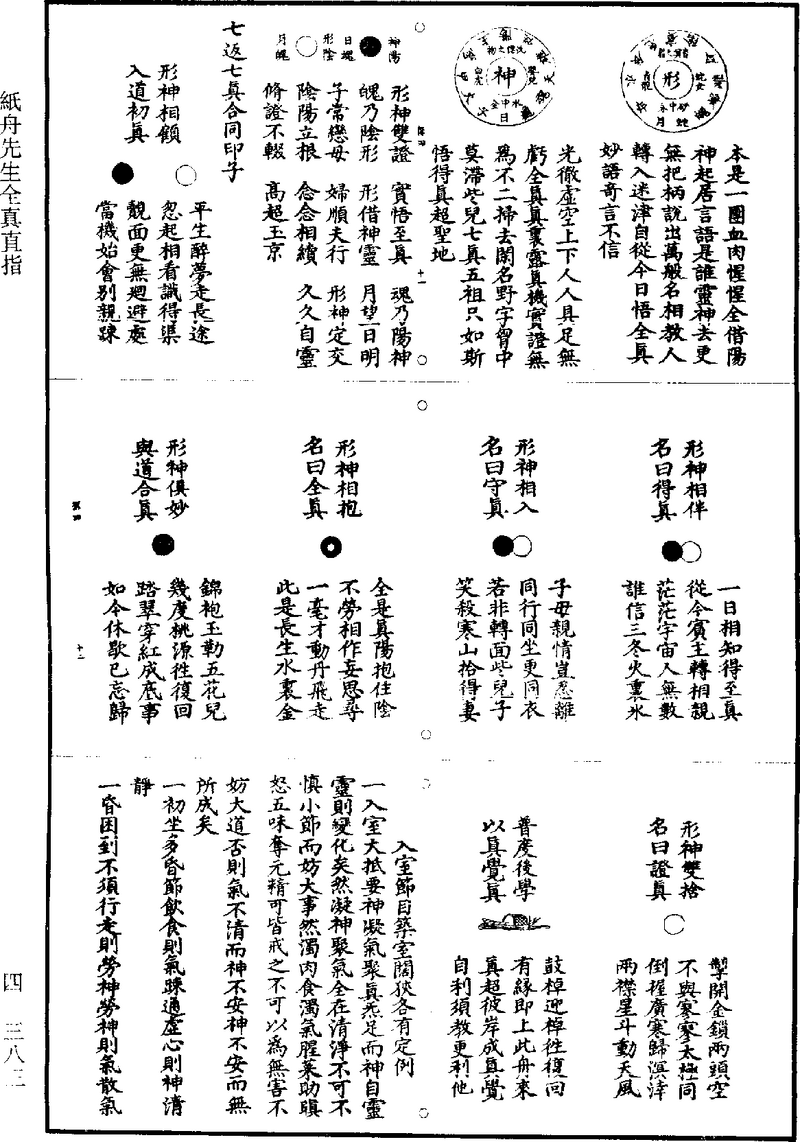 紙舟先生全真直指
本是一團血肉惺惺全借陽
神起居言語是誰靈神去更
無把柄說出萬般名相教人
轉入迷津自從今日悟全真
妙語奇言不信
形
神
光徹虛空上下人人具足無
虧全真真裏露真機實證無
為不二掃去閑名野字胷中
莫滯些兒七真五祖只如斯
悟得真超聖地
神陽
日魂
形陰
月魄
形神雙證　實悟至真　魂乃陽神
魄乃陰形　形借神靈　月望日明
子常戀母　婦順夫行　形神定交
陰陽立根　念念相續　久久自靈
脩證不輟　高超玉京
七返七真合同印子
形神相顧
入道初真
平生醉夢走長途
忽起相看識得渠
覿面更無廻避處
當機始會別親踈
形神相伴
名曰得真
一日相知得至真
從今賓主轉相親
茫茫宇宙人無數
誰信三冬火裏氷
形神相入
名曰守真
子母親情豈忍離
同行同坐更同衣
若非轉面些兒子
笑殺寒山拾得妻
形神相抱
名曰全真
全是真陽抱住陰
不勞相作妄思尋
一毫才動丹飛走
此是長生水裏金
形神俱妙
與道合真
錦袍玉勒五花兒
幾度桃源徃復回
踏翠穿紅成底事
如今休歇已忘歸
形神雙捨
名曰證真
掣開金鎖兩頭空
不與寒寥太極同
倒握廣寒歸溟涬
兩襟星斗動天風
普度後學
以真覺真
鼓棹迎棹徃復回
有緣即上此舟來
真超彼岸成真覺
自利須教更利他
入室節目築室闊狹各有定例
一入室大抵要神凝氣聚真炁足而神自靈
靈則變化矣然凝神聚氣全在清淨不可不
慎小節而妨大事然濁肉食濁氣腥葷助瞋
怒五味奪元精可皆戒之不可以為無害不
妨大道否則氣不清而神不安神不安而無
所成矣
一初坐多昏節飲食則氣踈通虛心則神清
靜
一昏困到不須行走則勞神勞神則氣散氣
四　三八三